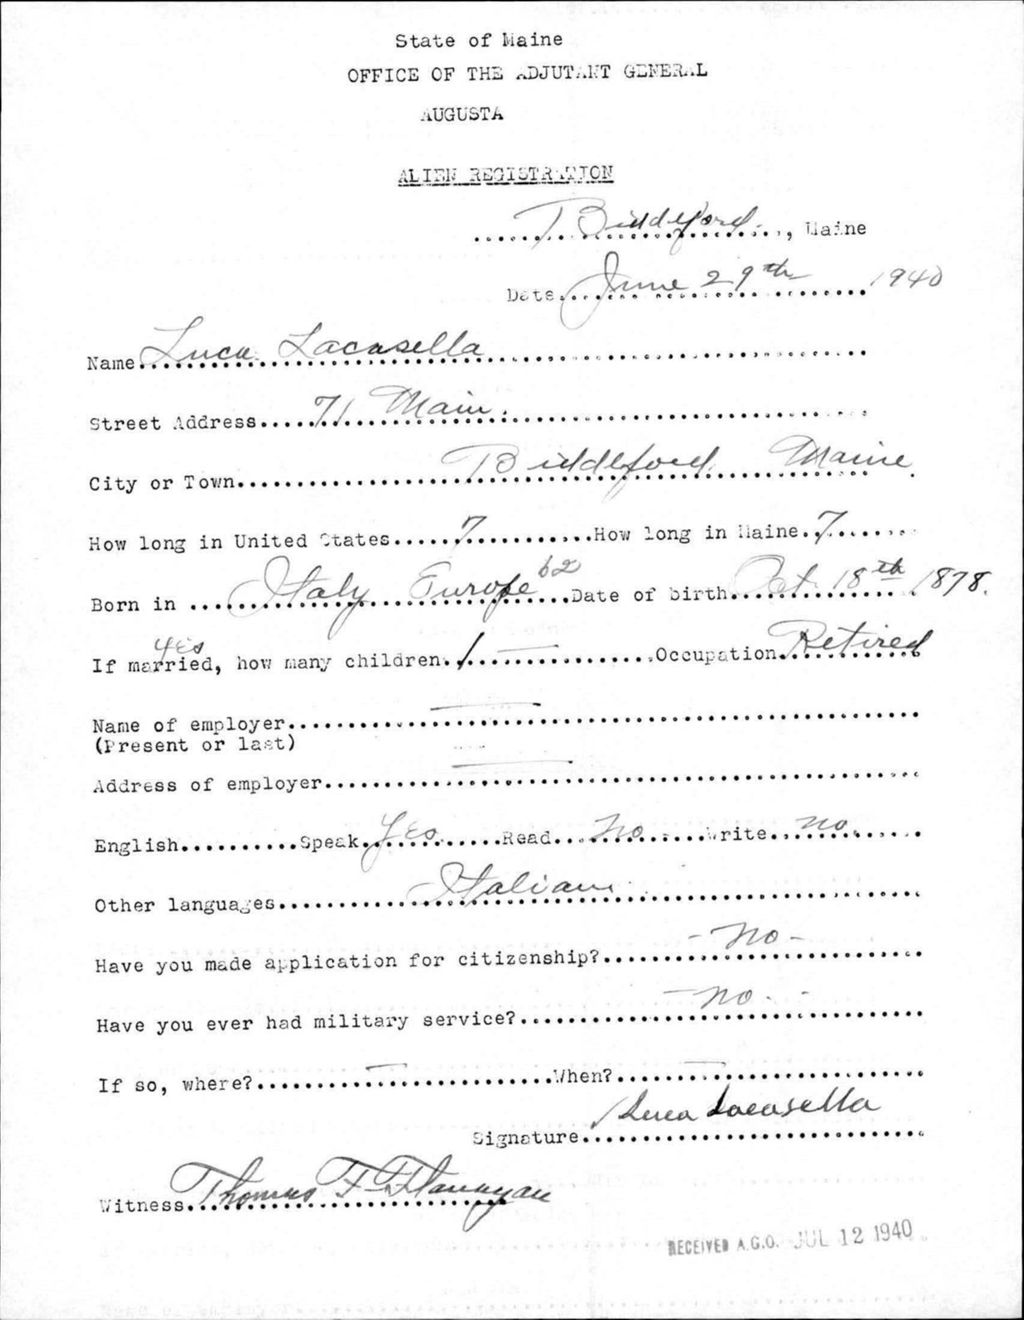 State of Maine
OFFICE OF THE ADJUTANT GENERAL
AUGUSTA
ALIEN REGISTRATION
Biddeford, Maine
Date June 29th 1940
Name Luca Lacasella
Street Address 71 Main.
City or Town Biddeford, Maine.
How long in United States 7 How long in Maine 7
Born in Italy Europe 62 Date of birth Oct. 18th 1878.
yes
If married, how many children 1 — Occupation Retired
Name of employer —
(Present or last)
Address of employer —
English Speak Yes Read No Write no
Other languages Italian
Have you made application for citizenship? - No -
Have you ever had military service? - no -
If so, where? — When? —
Signature Luca Lacasella
Witness Thomas F Flanagan
RECEIVED A.G.O. JUL 12 1940